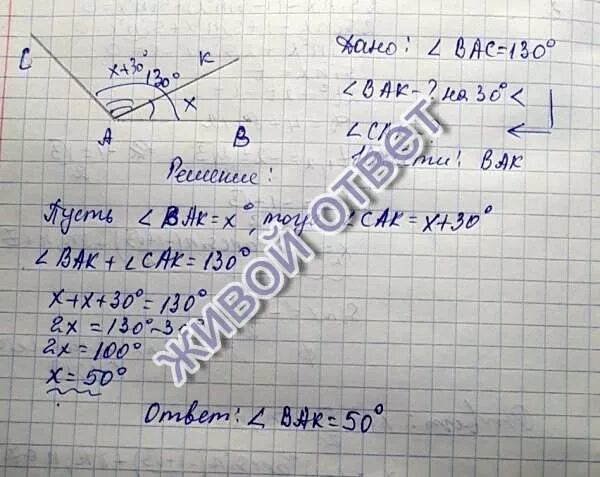 C
x+30°
130°
K
x
A
B
Дано: ∠ BAC=130°
∠ BAK-? на 30° <
∠
BAK
Решение:
Пусть ∠ BAK=x°, ∠ CAK= x+30°
∠ BAK + ∠ CAK= 130°
x+x+30°=130°
2x = 130°-30°
2x = 100°
x = 50°
Ответ: ∠ BAK=50°
ЖИВОЙ ОТВЕТ